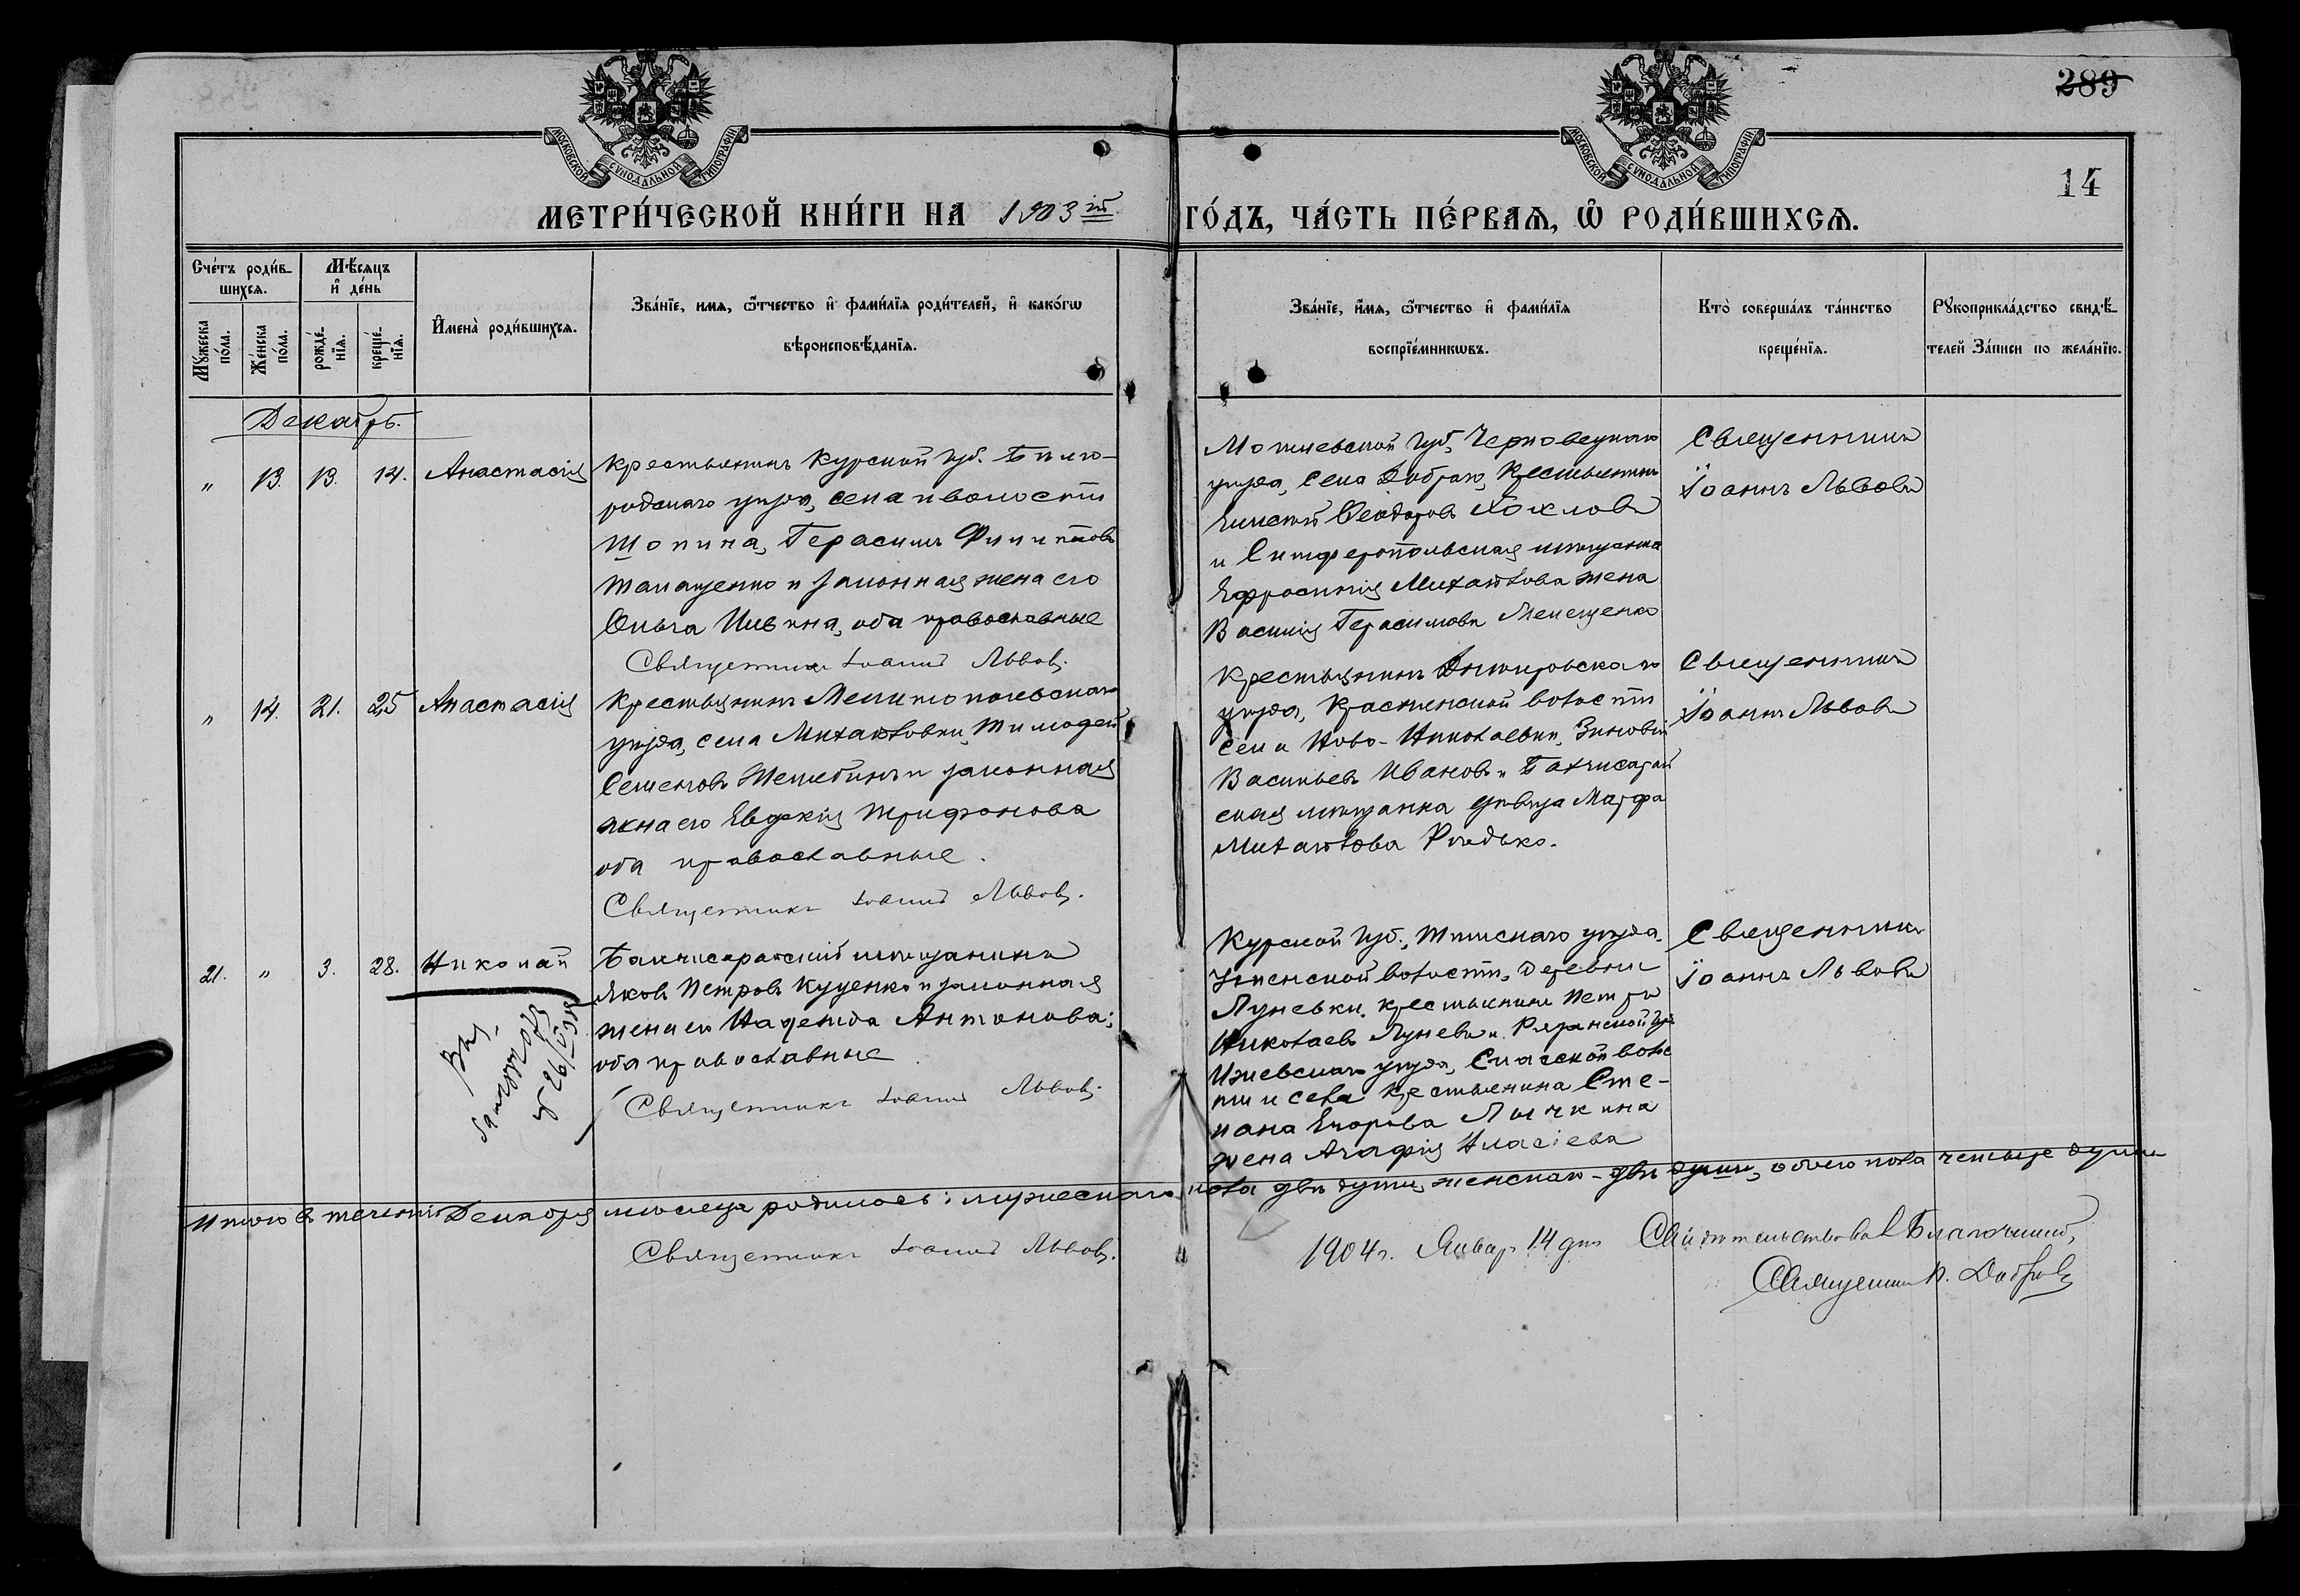 289
14
МОСКОВСКОЙ СУНОДАЛЬНОЙ ТИПОГРАФІИ
МОСКОВСКОЙ СУНОДАЛЬНОЙ ТИПОГРАФІИ
МЕТРИ́ЧЕСКОЙ КНИ́ГИ НА 1903 й ГО́ДЪ, ЧА́СТЬ ПЕ́РВАЯ, Ѡ РОДИ́ВШИХСЯ.
Сче́тъ роди́в-
шихся.
Мѣ́сяцъ
и де́нь
Му́жеска
по́ла.
Же́нска
по́ла.
рожде́-
нїя.
креще́-
нїя.
Имена̀ роди́вшихся.
Зва́нїе, имя, ѻтчество и фами́лїя роди́телей, и како́гѡ
вѣроисповѣ́данїя.
Зва́нїе, и́мя, ѻтчество и фами́лїя
воспрїе́мникѡвъ.
Кто̀ соверша́лъ та́инство
креще́нїя.
Рукоприкла́дство свидѣ́-
телей За́писи по жела́нїю.
Декабрь.
„ 13. 13. 14. Анастасія
Крестьянинъ Курской губ. Бѣло-
родскаго уѣзда, села и волости
Шопина, Герасимъ Филипповъ
и законная жена его
Ольга Ильина, оба православные
Священникъ Іоаннъ Львовъ.
Могилевской губ.
уѣзда, села Добраго, Крестьянинъ
Елисей Ѳеодоровъ Хохловъ
и Симферопольская мѣщанка
Ефросинія Михайлова жена
Василія Герасимова
Священникъ
Іоаннъ Львовъ
„ 14. 21. 25 Анастасія
Крестьянинъ Мелитопольскаго
уѣзда, села Михайловки, Тимофей
Семеновъ и законная
жена его Евдокія Трифонова
оба православные.
Священникъ Іоаннъ Львовъ.
Крестьянинъ Днѣпровскаго
уѣзда, Крестьянской волости
села Ново-Николаевки, Зиновій
Васильевъ Ивановъ и Бахчисарай
ская мѣщанка дѣвица Марфа
Михайлова Рѣдько.
Священникъ
Іоаннъ Львовъ
21. „ 3. 28. Николай
Бахчисарайскій мѣщанинъ
Яковъ Петровъ Куценко и законная
жена его Надежда Антонова;
оба православные
Священникъ Іоаннъ Львовъ.
Курской губ., Тимскаго уѣзда,
Успенской волости, деревни
Луневки, крестьянинъ Петръ
Николаевъ Луневъ и Рязанской губ.
уѣзда, Спасской воло
сти и села крестьянина Сте-
пана Егорова Лычкина
жена Агафія Власіева
Священникъ
Іоаннъ Львовъ
Итого въ теченіи Декабря мѣсяца родилось: мужескаго пола двѣ души, женскаго - двѣ души, обоего пола четыре души
Священникъ Іоаннъ Львовъ.
1904 г. Январ. 14 дня Свидѣтельствовалъ Благочинный,
Священник Н. Добровъ